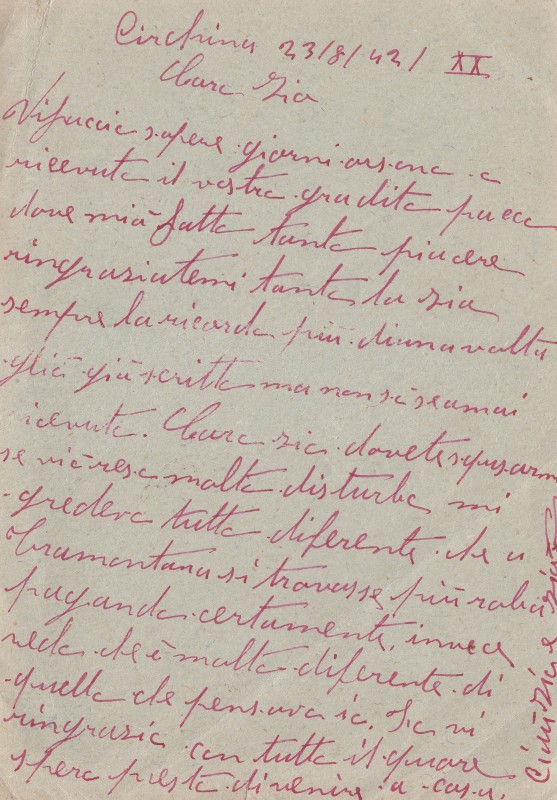 Circhina 23/8/42/ XX
Caro Zio
Vi faccio sapere giorni orsono o
ricevuto il vostro gradito pacco
dove mià fatto tanto piacere
ringraziatemi tanto la zia
sempre la ricordo più di una volta
gliò già scritto ma non sò se a mai
icevuto. Caro zio dovete squsarmi
se viò reso molto disturbo mi
gredevo tutto diferente che a
Tramontana si trovasse più roba
pagando certamente, invece
vedo che è molto diferente di
quello che pensavo io. Io vi
ringrazio con tutto il quore
spero presto di venire a casa.